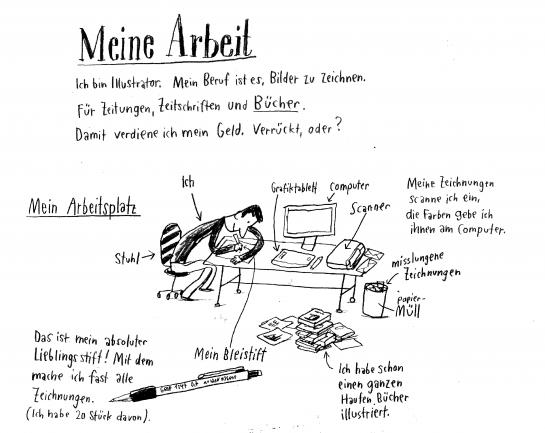 Meine Arbeit
Ich bin Illustrator. Mein Beruf ist es, Bilder zu zeichnen.
Für Zeitungen, Zeitschriften und Bücher.
Damit verdiene ich mein Geld. Verrückt, oder?
Mein Arbeitsplatz
Ich
Grafiktablett
Computer
Scanner
Meine Zeichnungen
scanne ich ein,
die Farben gebe ich
ihnen am Computer.
Stuhl
misslungene
Zeichnungen
Papier-
Müll
Das ist mein absoluter
Lieblingsstift! Mit dem
mache ich fast alle
Zeichnungen.
(Ich habe 20 Stück davon).
Mein Bleistift
Ich habe schon
einen ganzen
Haufen Bücher
illustriert.